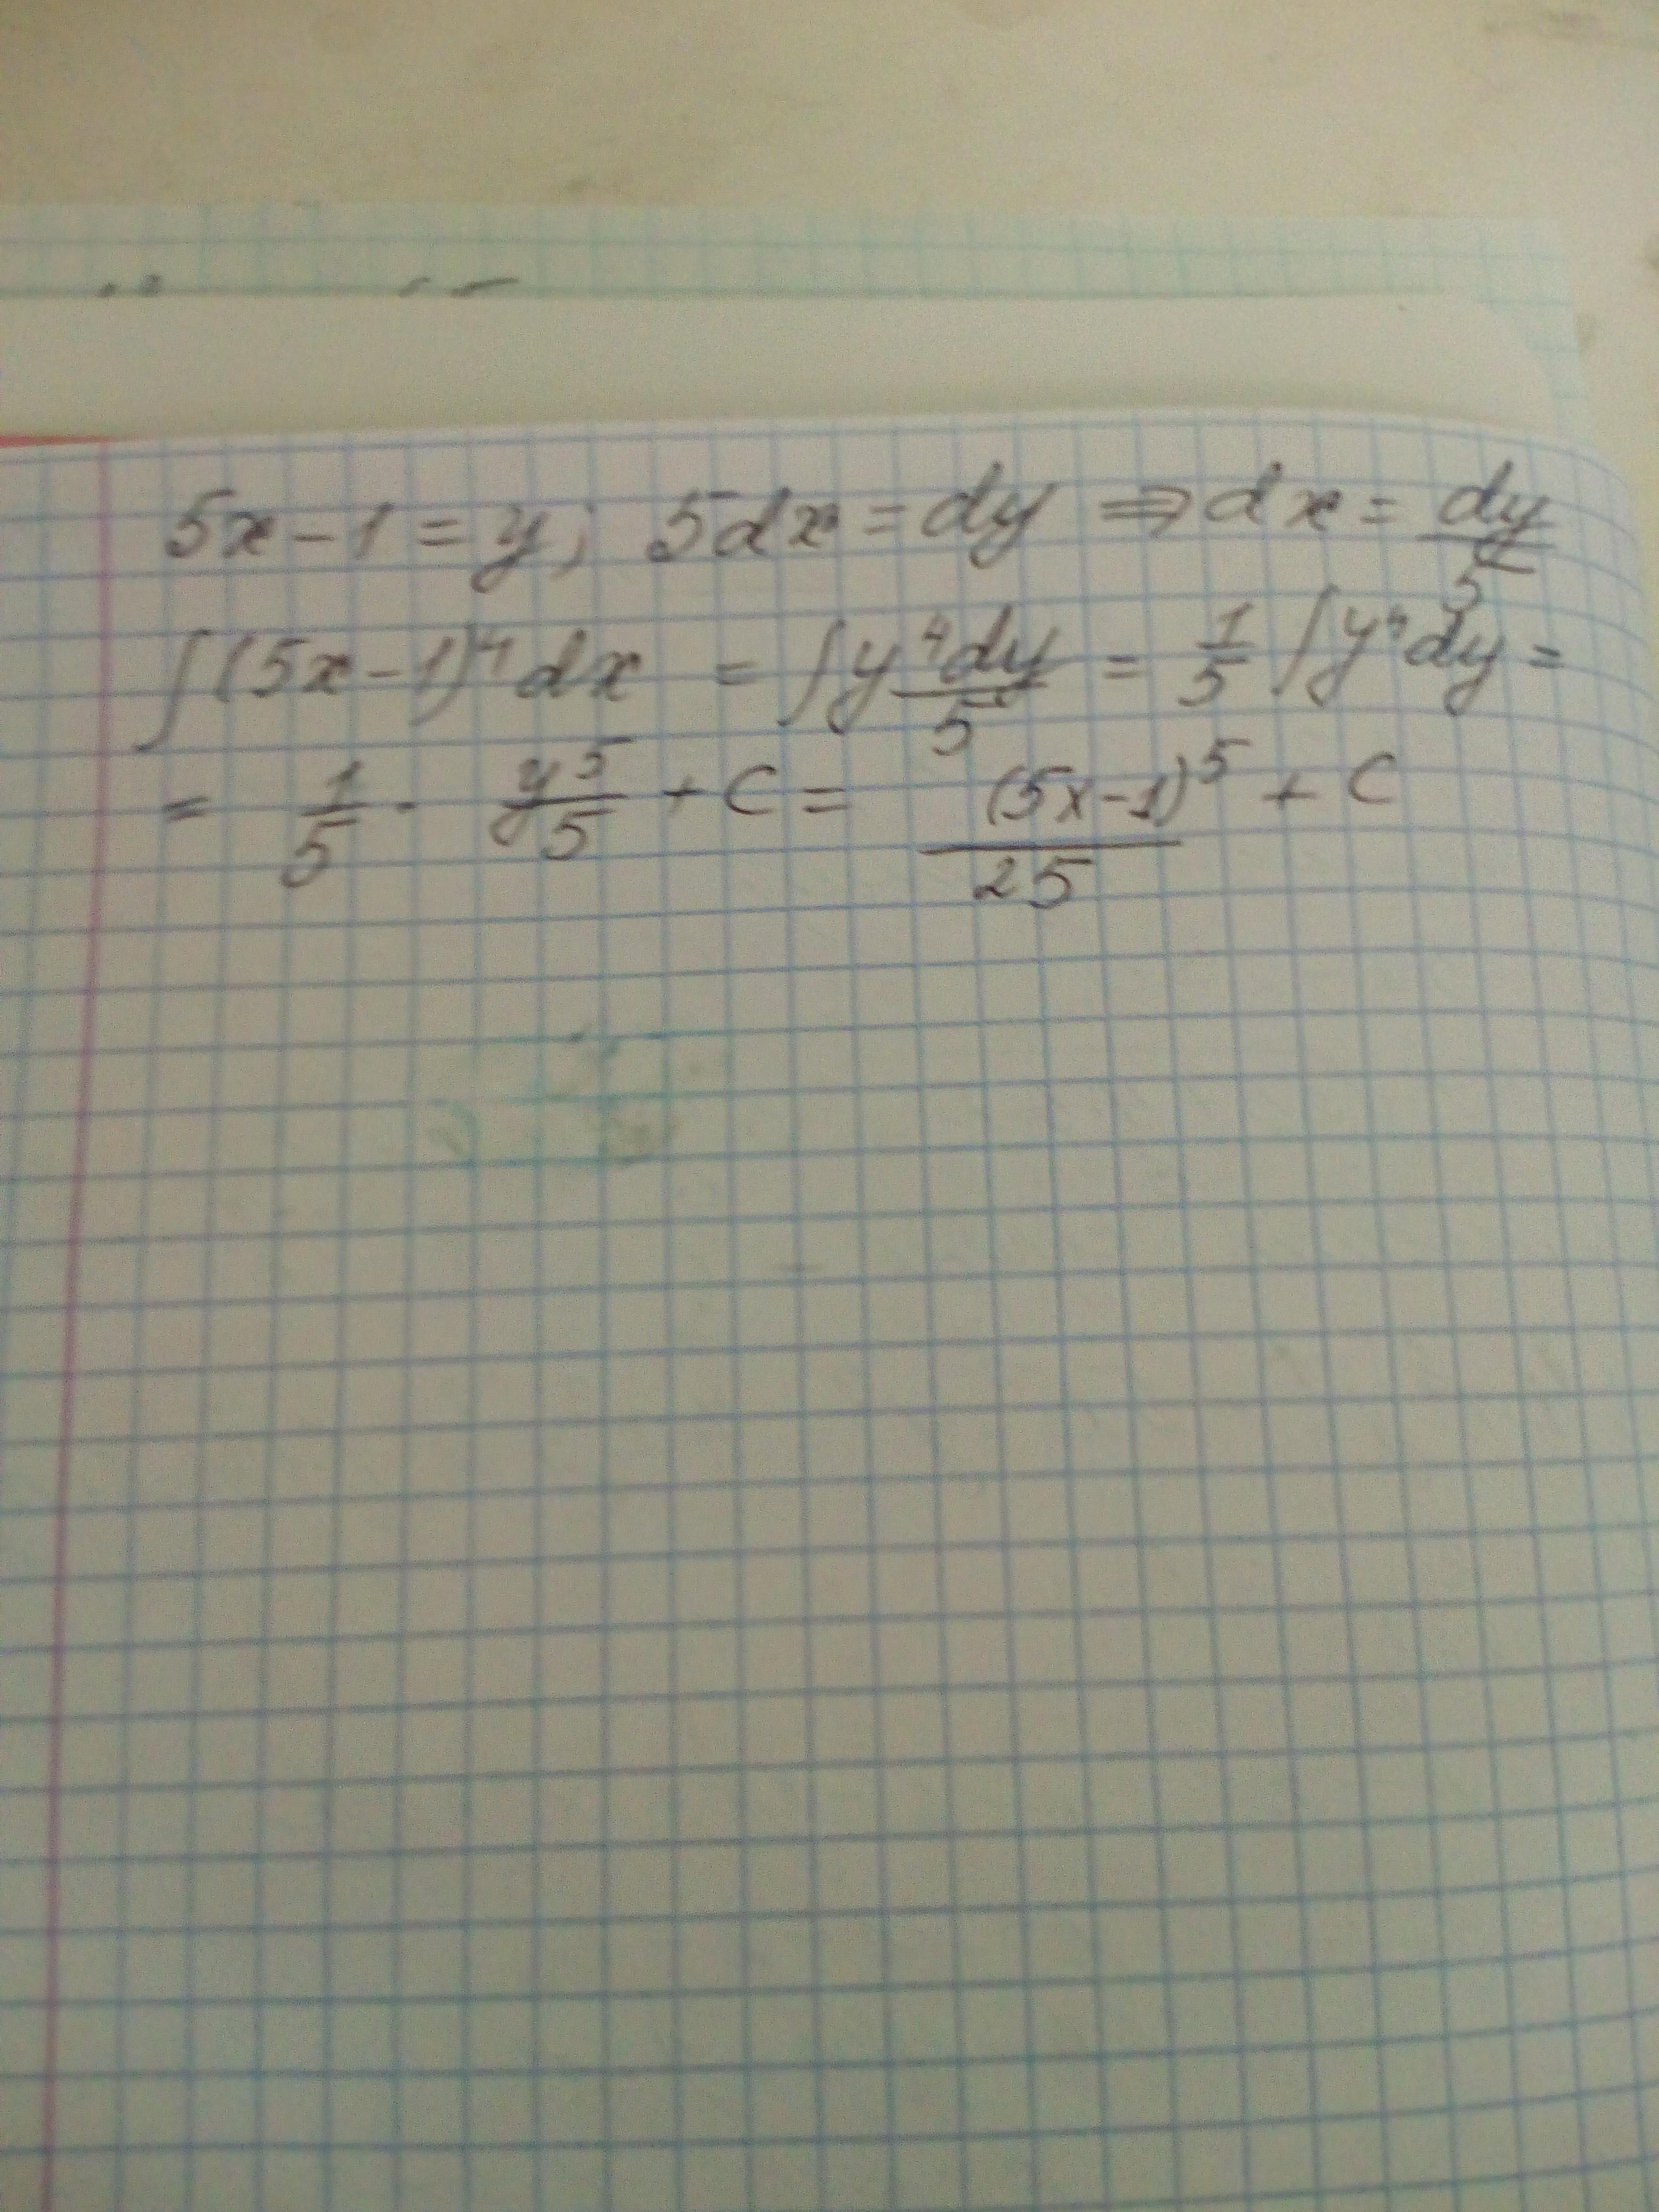 5x-1=y; 5dx=dy ⇒ dx = dy/5
∫(5x-1)⁴dx = ∫y⁴dy/5 = 1/5 ∫y⁴dy =
= 1/5 · y⁵/5 + C = (5x-1)⁵/25 + C